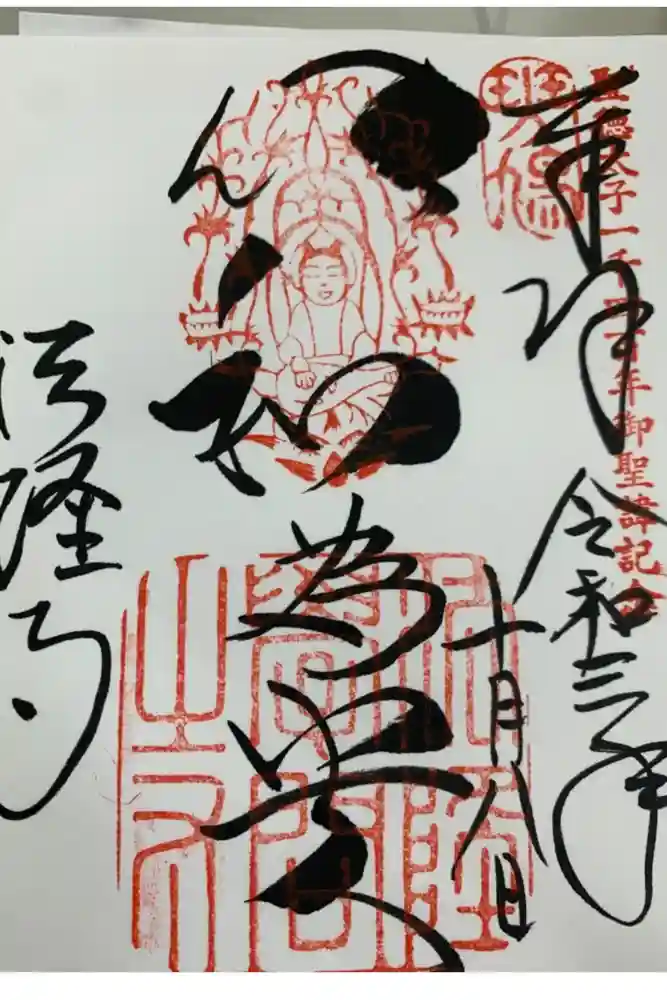 聖徳太子一千四百年御聖諱記念
斑鳩
奉拝 令和三年
十月八日
以和為貴
法隆寺